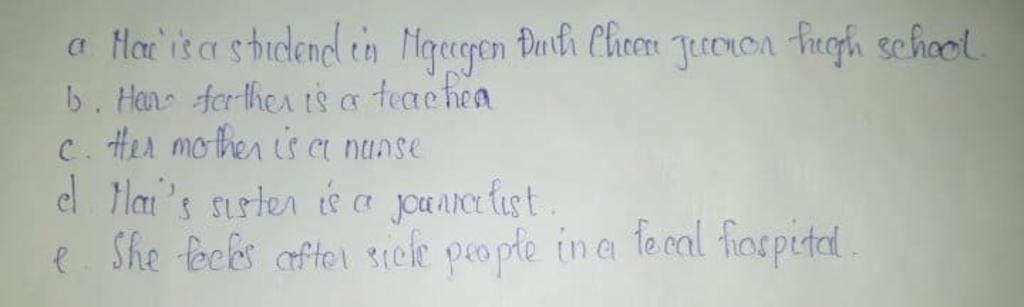 a. Hai is a studend in Nguyen Đinh Chieu junion high school.
b. Han farther is a teacher
c. Her mother is a nurse
d. Hai's sister is a journalist.
e. She looks after sick people in a local hospital.